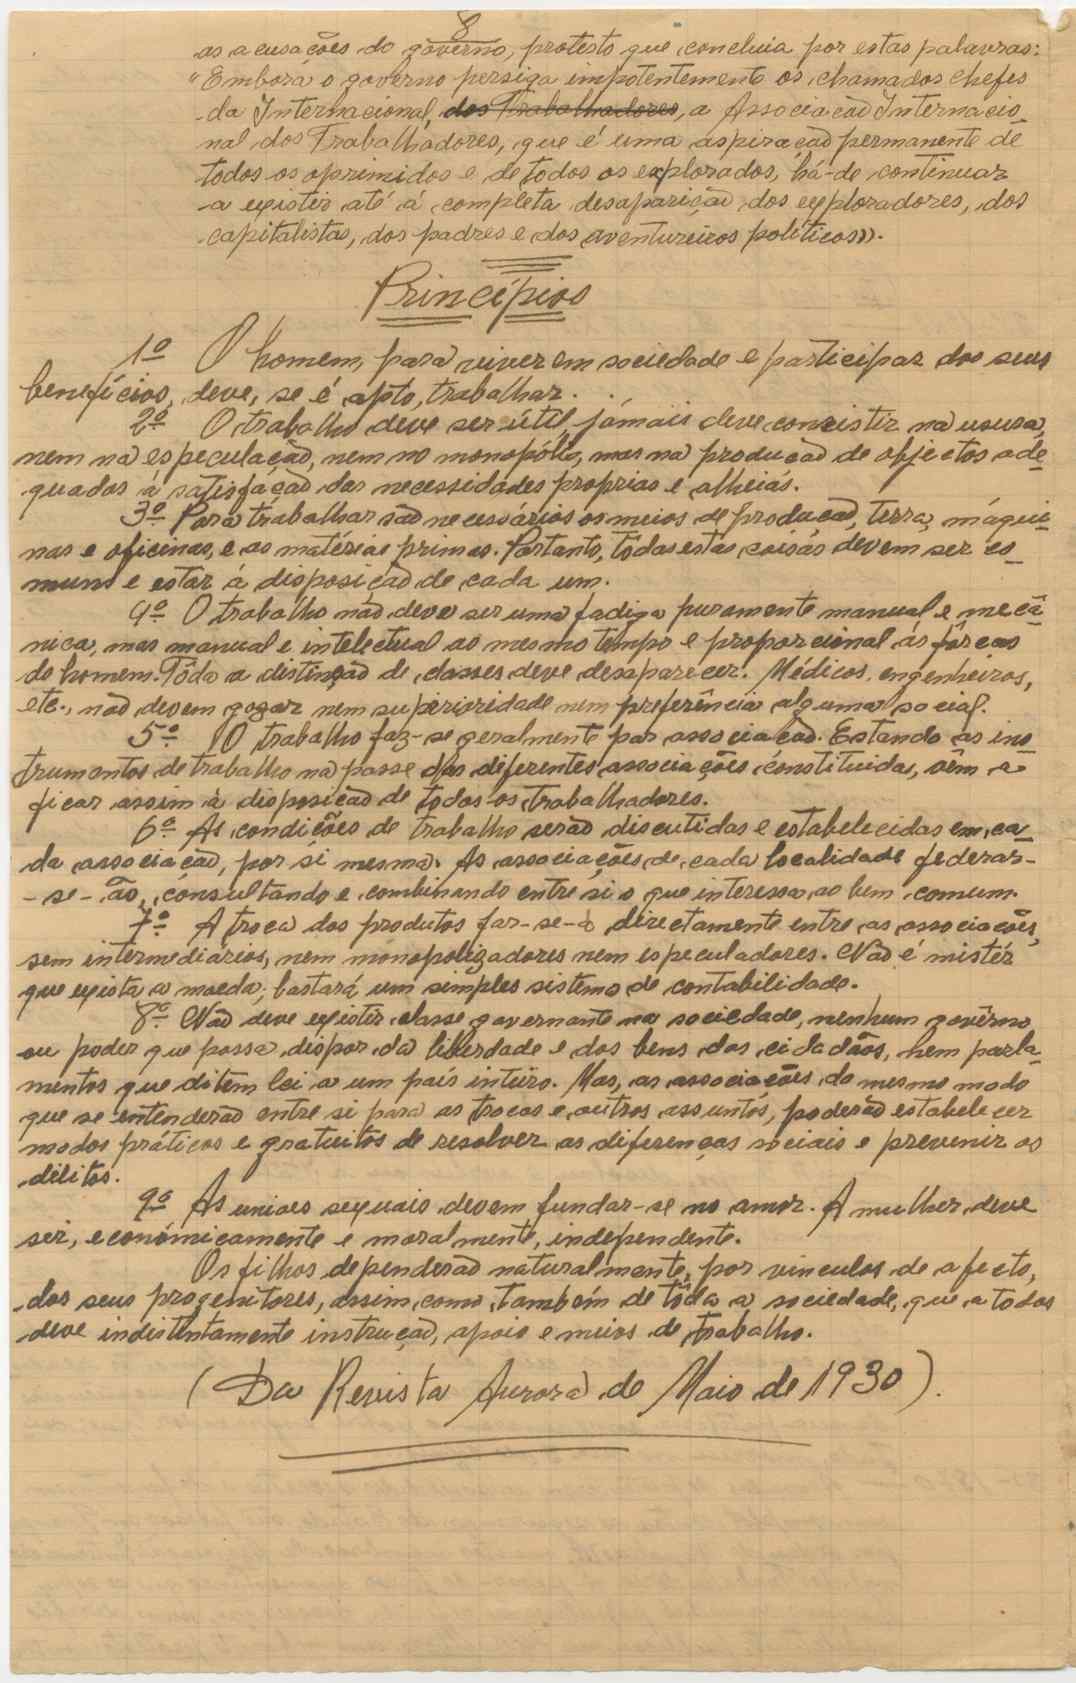 8
as acusações do governo, protesto que concluia por estas palavras:
"Embora o governo persiga impotentemente os chamados chefes
da Internacional, dos Trabalhadores, a Associação Internacio-
nal dos Trabalhadores, que é uma aspiração permanente de
todos os oprimidos e de todos os explorados, há-de continuar
a existir até á completa desaparição dos exploradores, dos
capitalistas, dos padres e dos aventureiros políticos».
Princípios
1º O homem, para viver em sociedade e participar dos seus
benefícios, deve, se é apto, trabalhar.
2º O trabalho deve ser útil, jámais deve consistir na usura,
nem na especulação, nem no monopólio, mas na produção de objectos ade-
quados a satisfação das necessidades proprias e alheias.
3º Para trabalhar são necessários os meios de produção, terra, máqui-
nas e oficinas, e as matérias primas. Portanto, tôdas estas coisas devem ser co-
muns e estar á disposição de cada um.
4º O trabalho não deve ser uma fadiga puramente manual e mecâ-
nica, mas manual e intelectual ao mesmo tempo e proporcional ás fôrças
do homem. Tôda a distinção de classes deve desaparecer. Médicos, engenheiros,
etc., não devem gozar nem superioridade nem preferência alguma social.
5º O trabalho faz-se geralmente por associação. Estando os ins-
trumentos de trabalho na posse das diferentes associações constituidas, vêm a
ficar assim à disposição de todos os trabalhadores.
6º As condições de trabalho serão discutidas e estabelecidas em ca-
da associação, por si mesma. As associações de cada localidade federar-
-se-ão, consultando e combinando entre si o que interessa ao bem comum.
7º A troca dos produtos far-se-á directamente entre as associações,
sem intermediários, nem monopolizadores nem especuladores. Não é mistér
que exista a moeda; bastará um simples sistema de contabilidade.
8º Não deve existir classe governante na sociedade, nenhum govêrno
ou poder que possa dispor da liberdade e dos bens dos cidadãos, nem parla-
mentos que ditem lei a um país inteiro. Mas, as associações do mesmo modo
que se entenderão entre si para as trocas e outros assuntos, poderão estabelecer
modos práticos e gratuitos de resolver as diferenças sociais e prevenir os
delitos.
9º As unioes sexuais devem fundar-se no amor. A mulher deve
ser, económicamente e moralmente, independente.
Os filhos dependerão naturalmente, por vinculos de afecto,
dos seus progenitores, assim como também de tôda a sociedade, que a todos
deve indistintamente instrução, apoio e meios de trabalho.
(Da Revista Aurora de Maio de 1930).